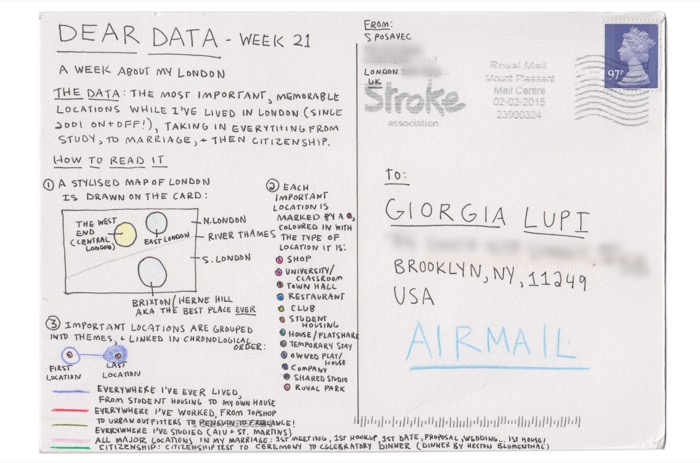 DEAR DATA - WEEK 21
A WEEK ABOUT MY LONDON
THE DATA: THE MOST IMPORTANT, MEMORABLE
LOCATIONS WHILE I'VE LIVED IN LONDON (SINCE
2001 ON+OFF!), TAKING IN EVERYTHING FROM
STUDY, TO MARRIAGE, + THEN CITIZENSHIP.
HOW TO READ IT
① A STYLISED MAP OF LONDON
IS DRAWN ON THE CARD:
THE WEST
END
(CENTRAL
LONDON)
EAST LONDON
N. LONDON
RIVER THAMES
S. LONDON
BRIXTON/HERNE HILL
AKA THE BEST PLACE EVER
② EACH
IMPORTANT
LOCATION IS
MARKED BY A
COLOURED IN WITH
THE TYPE OF
LOCATION IT IS:
SHOP
UNIVERSITY/
CLASSROOM
TOWN HALL
RESTAURANT
CLUB
STUDENT
HOUSING
HOUSE/FLATSHARE
TEMPORARY STAY
OWNED FLAT/
HOUSE
COMPANY
SHARED STUDIO
ROYAL PARK
③ IMPORTANT LOCATIONS ARE GROUPED
INTO THEMES, + LINKED IN CHRONOLOGICAL
ORDER:
FIRST
LOCATION
LAST
LOCATION
EVERYWHERE I'VE EVER LIVED,
FROM STUDENT HOUSING TO MY OWN HOUSE
EVERYWHERE I'VE WORKED, FROM TOPSHOP
TO URBAN OUTFITTERS TO PENGUIN TO FREELANCE!
EVERYWHERE I'VE STUDIED (AIU + ST. MARTINS)
ALL MAJOR LOCATIONS IN MY MARRIAGE: 1ST MEETING, 1ST HOOKUP, 1ST DATE, PROPOSAL, WEDDING... 1ST HOUSE!
CITIZENSHIP: CITIZENSHIP TEST TO CEREMONY TO CELEBRATORY DINNER (DINNER BY HESTON BLUMENTHAL)
FROM:
S POSAVEC
LONDON
UK
Stroke
association
Royal Mail
Mount Pleasant
Mail Centre
02-02-2015
23900324
97P
TO:
GIORGIA LUPI
BROOKLYN, NY, 11249
USA
AIRMAIL